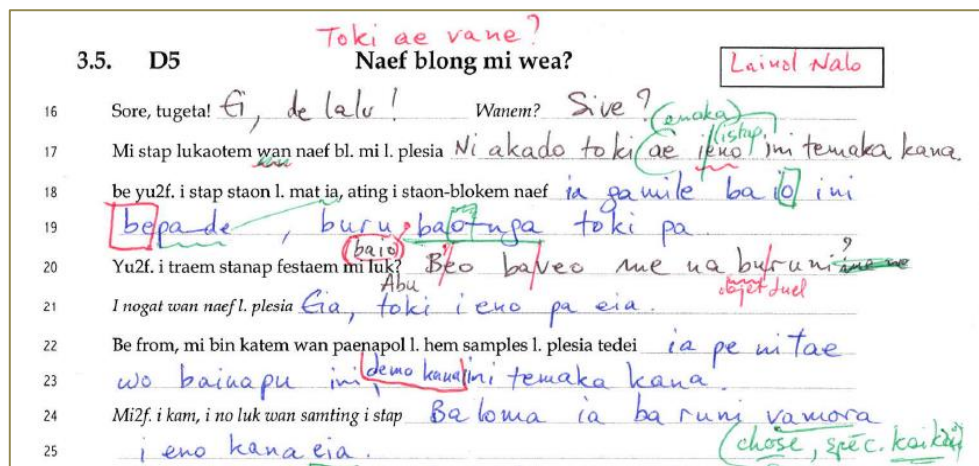 Toki ae vane?
3.5. D5 Naef blong mi wea? Lainol Nalo
16 Sore, tugeta! Ei, de lalu! Wanem? Sive?
(enaka)
(istap,
17 Mi stap lukaotem wan naef bl. mi l. plesia Ni akado toki ae ieno ini temaka kana.
18 be yu2f. i stap staon l. mat ia, ating i staon-blokem naef ia gamile ba io ini
19 bepade, buru baotuga toki pa
(baio)
20 Yu2f. i traem stanap festaem mi luk? Beo baveo me na buruni
?
Abu
objet duel
21 I nogat wan naef l. plesia Eia, toki i eno pa eia.
22 Be from, mi bin katem wan paenapol l. hem samples l. plesia tedei ia pe ni tae
23 wo bainapu ini demo kana ini temaka kana.
24 Mi2f. i kam, i no luk wan samting i stap Ba loma ia ba runi vamora
25 i eno kana eia. (chose, spéc. kaikai)